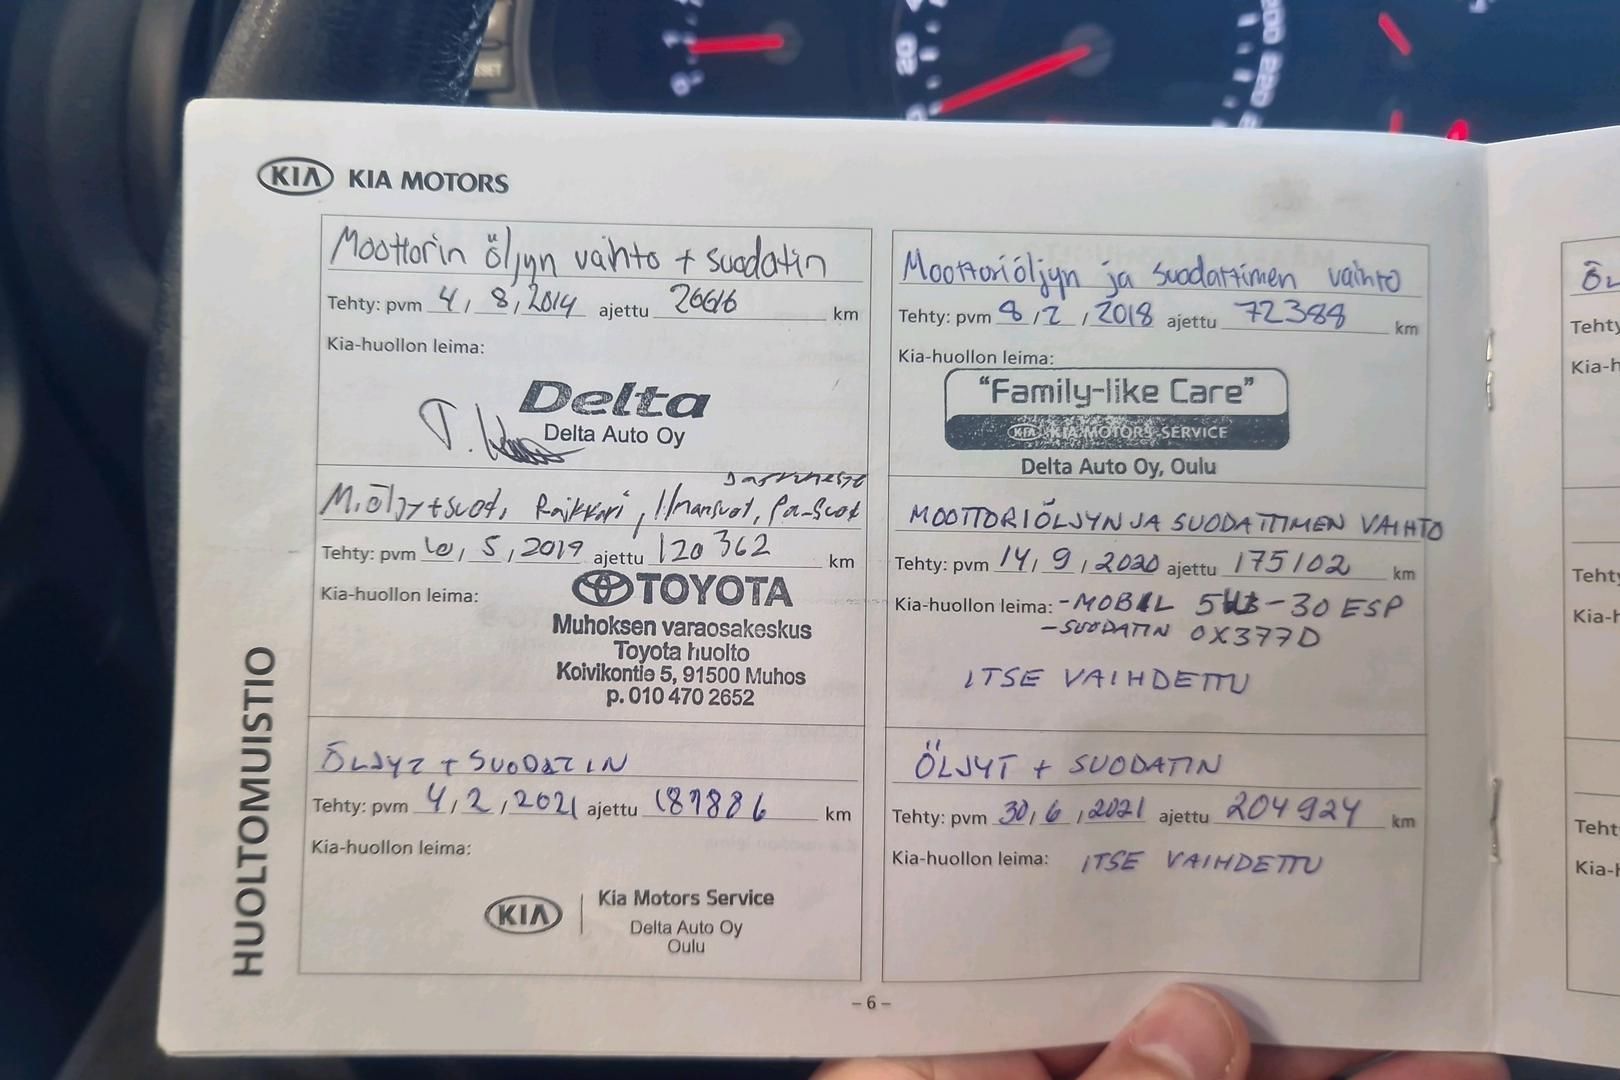 KIA KIA MOTORS
Moottorin öljyn vaihto + suodatin
Tehty: pvm 4, 8, 2014 ajettu 26616 km
Kia-huollon leima:
Delta
Delta Auto Oy
M.öljy+suod, Raikkari, Ilmansuod, pa-suod
Tehty: pvm 5, 2019 ajettu 120 362 km
Kia-huollon leima:
TOYOTA
Muhoksen varaosakeskus
Toyota huolto
Koivikontie 5, 91500 Muhos
p. 010 470 2652
ÖLJYT + SUODATIN
Tehty: pvm 4, 2, 2021 ajettu 187886 km
Kia-huollon leima:
KIA Kia Motors Service
Delta Auto Oy
Oulu
Moottoriöljyn ja suodattimen vaihto
Tehty: pvm 8, 2, 2018 ajettu 72388 km
Kia-huollon leima:
"Family-like Care"
KIA KIA MOTORS SERVICE
Delta Auto Oy, Oulu
MOOTTORIÖLJYN JA SUODATTIMEN VAIHTO
Tehty: pvm 14, 9, 2020 ajettu 175102 km
Kia-huollon leima: -MOBIL 5W-30 ESP
-SUODATIN OX377D
ITSE VAIHDETTU
ÖLJYT + SUODATIN
Tehty: pvm 30, 6, 2021 ajettu 204924 km
Kia-huollon leima: ITSE VAIHDETTU
HUOLTOMUISTIO
- 6 -
20
220